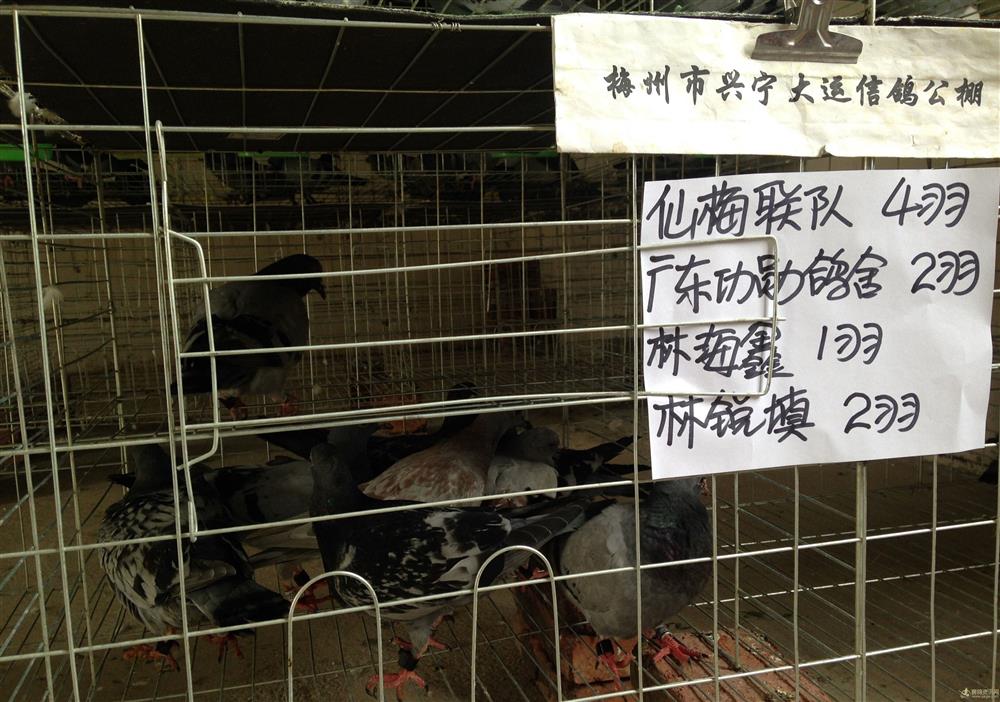 梅州市兴宁大运信鸽公棚
仙梅联队 4羽
广东功勋鸽舍 2羽
林海鑫 1羽
林锐填 2羽